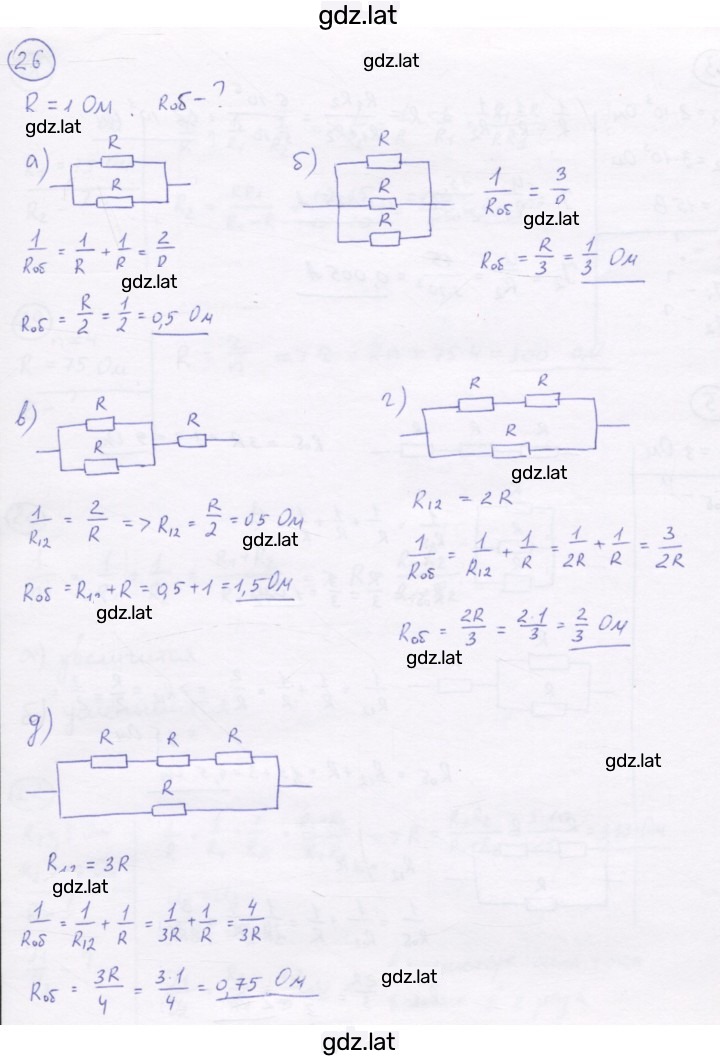 gdz.lat
26
gdz.lat
R = 1 Ом. Rоб - ?
gdz.lat
а) R R
1/Rоб = 1/R + 1/R = 2/R
gdz.lat
Rоб = R/2 = 1/2 = 0,5 Ом
б) R R R
1/Rоб = 3/R
gdz.lat
Rоб = R/3 = 1/3 Ом
в) R R R
1/R12 = 2/R => R12 = R/2 = 05 Ом
gdz.lat
Rоб = R12 + R = 0,5 + 1 = 1,5 Ом
gdz.lat
г) R R R
gdz.lat
R12 = 2R
1/Rоб = 1/R12 + 1/R = 1/2R + 1/R = 3/2R
Rоб = 2R/3 = 2·1/3 = 2/3 Ом
gdz.lat
д) R R R R
gdz.lat
R12 = 3R
gdz.lat
1/Rоб = 1/R12 + 1/R = 1/3R + 1/R = 4/3R
Rоб = 3R/4 = 3·1/4 = 0,75 Ом
gdz.lat
gdz.lat